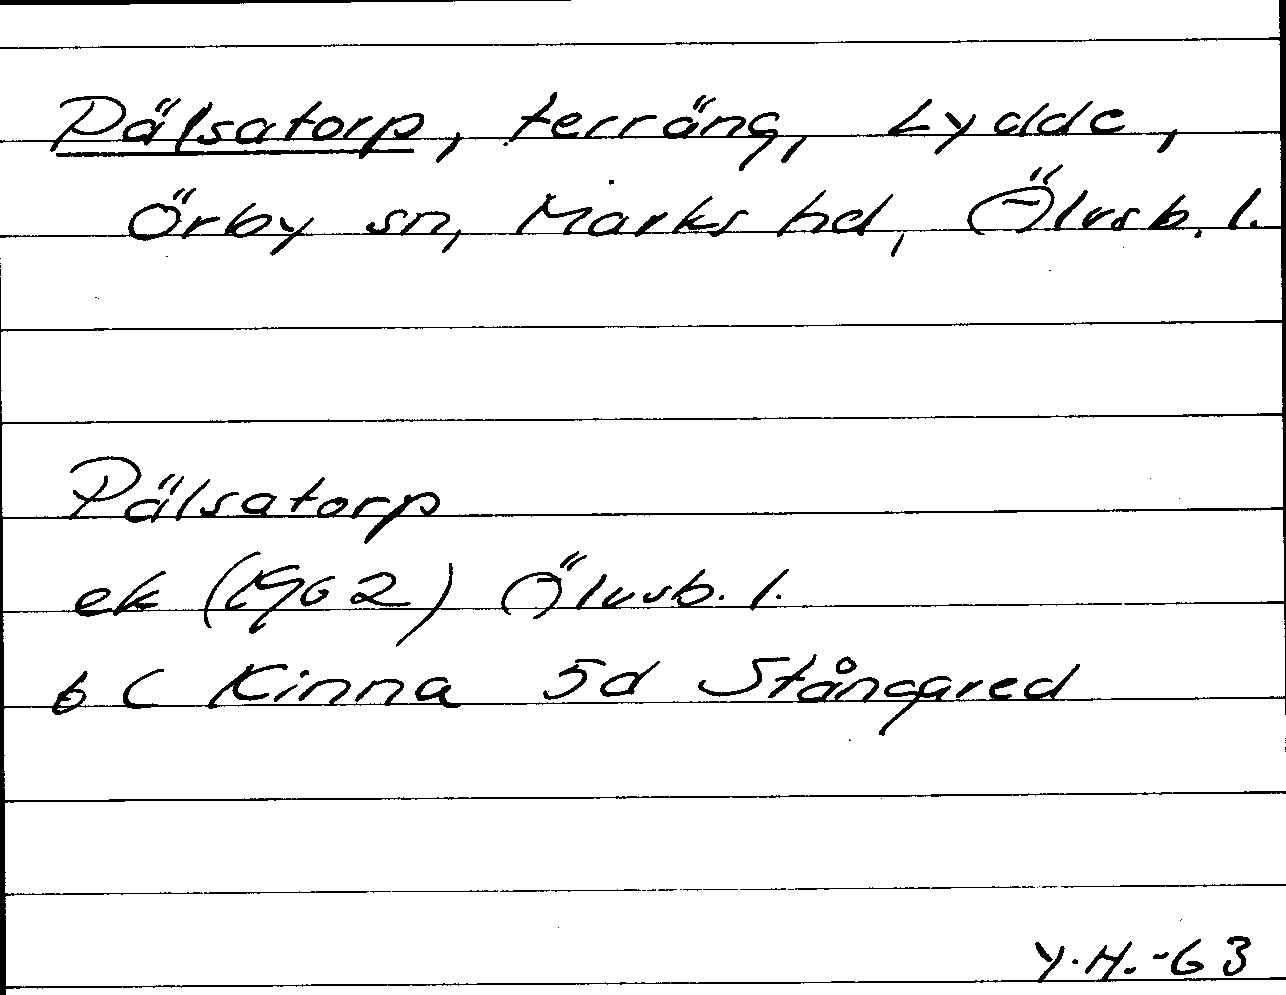 Pälsatorp, terräng, Lydde,
Örby sn, Marks hd, Älvsb. l.
Pälsatorp
ek (1962) Älvsb. l.
6 C Kinna 5d Stångared
Y.H.-63